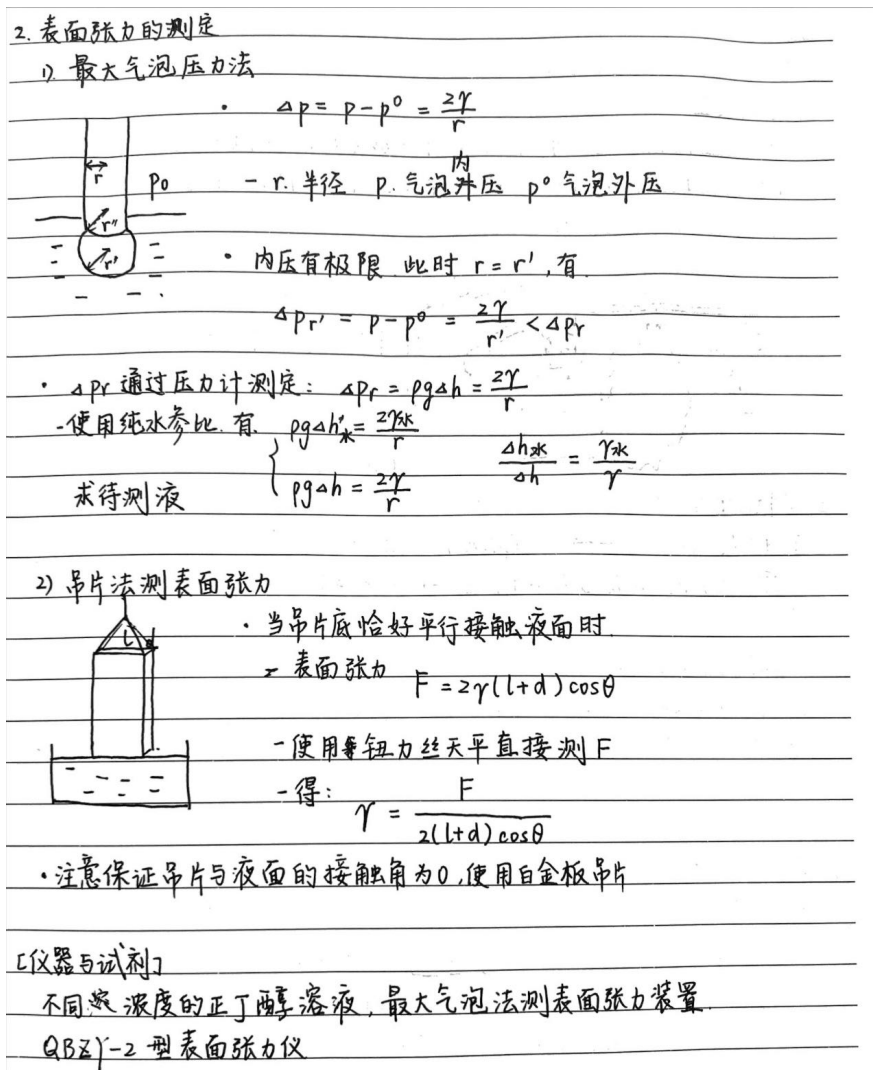 2. 表面张力的测定
1) 最大气泡压力法
· Δp = p - p⁰ = 2γ/r
r p₀ - r. 半径 p. 气泡内压 p⁰ 气泡外压
r''
r' · 内压有极限 此时 r = r', 有
Δpr' = p - p⁰ = 2γ/r' < Δpr
· Δpr 通过压力计测定: Δpr = ρgΔh = 2γ/r
-使用纯水参比. 有. { ρgΔh水 = 2γ水/r
求待测液 ρgΔh = 2γ/r Δh水/Δh = γ水/γ
2) 吊片法测表面张力
· 当吊片底恰好平行接触液面时.
l d - 表面张力 F = 2γ(l+d)cosθ
- 使用钮力丝天平直接测 F
- 得: γ = F/2(l+d)cosθ
· 注意保证吊片与液面的接触角为0, 使用白金板吊片
[仪器与试剂]
不同浓度的正丁醇溶液, 最大气泡法测表面张力装置.
QBZY-2 型表面张力仪